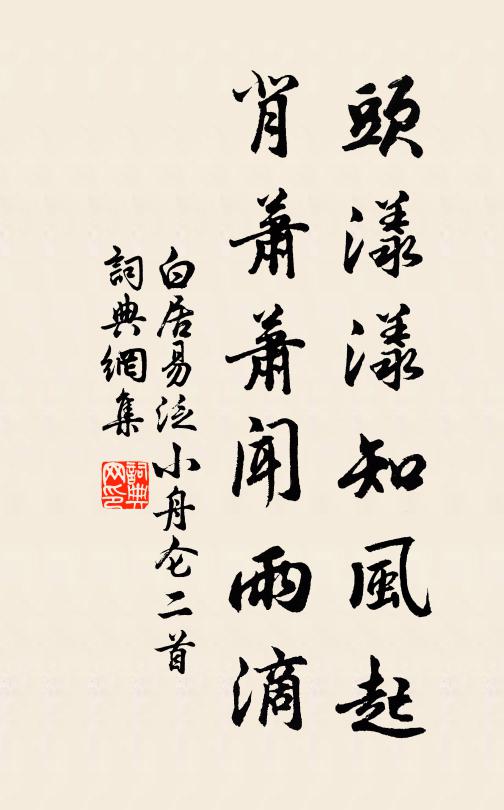 頭漾漾知風起
背蕭蕭聞雨滴
白居易泛小舟仑二首
詞典網集
詞典网印